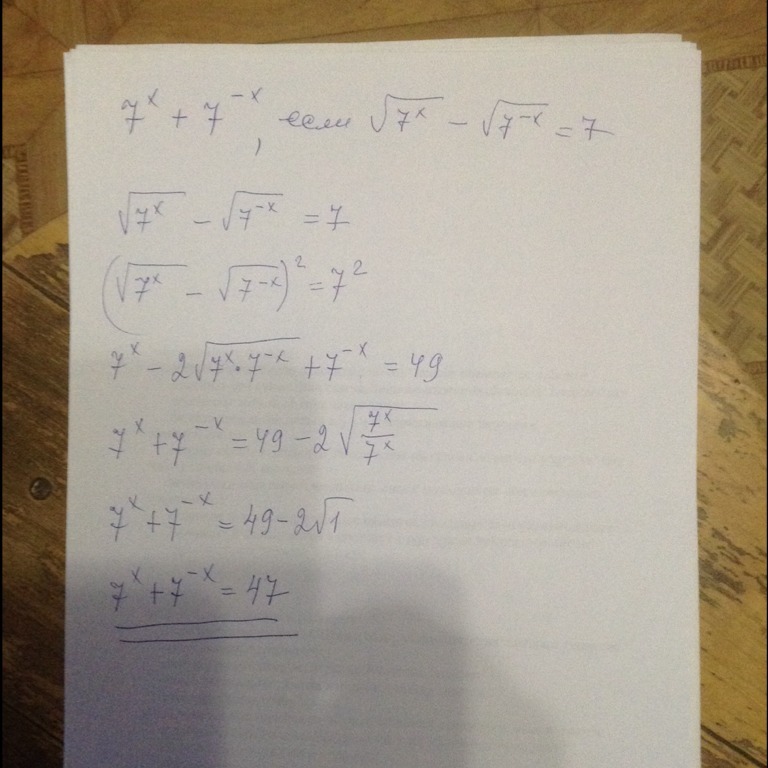 7^x + 7^-x, если √7^x − √7^-x = 7
√7^x − √7^-x = 7
(√7^x − √7^-x)^2 = 7^2
7^x − 2√7^x·7^-x + 7^-x = 49
7^x + 7^-x = 49 − 2√7^x/7^x
7^x + 7^-x = 49 − 2√1
7^x + 7^-x = 47